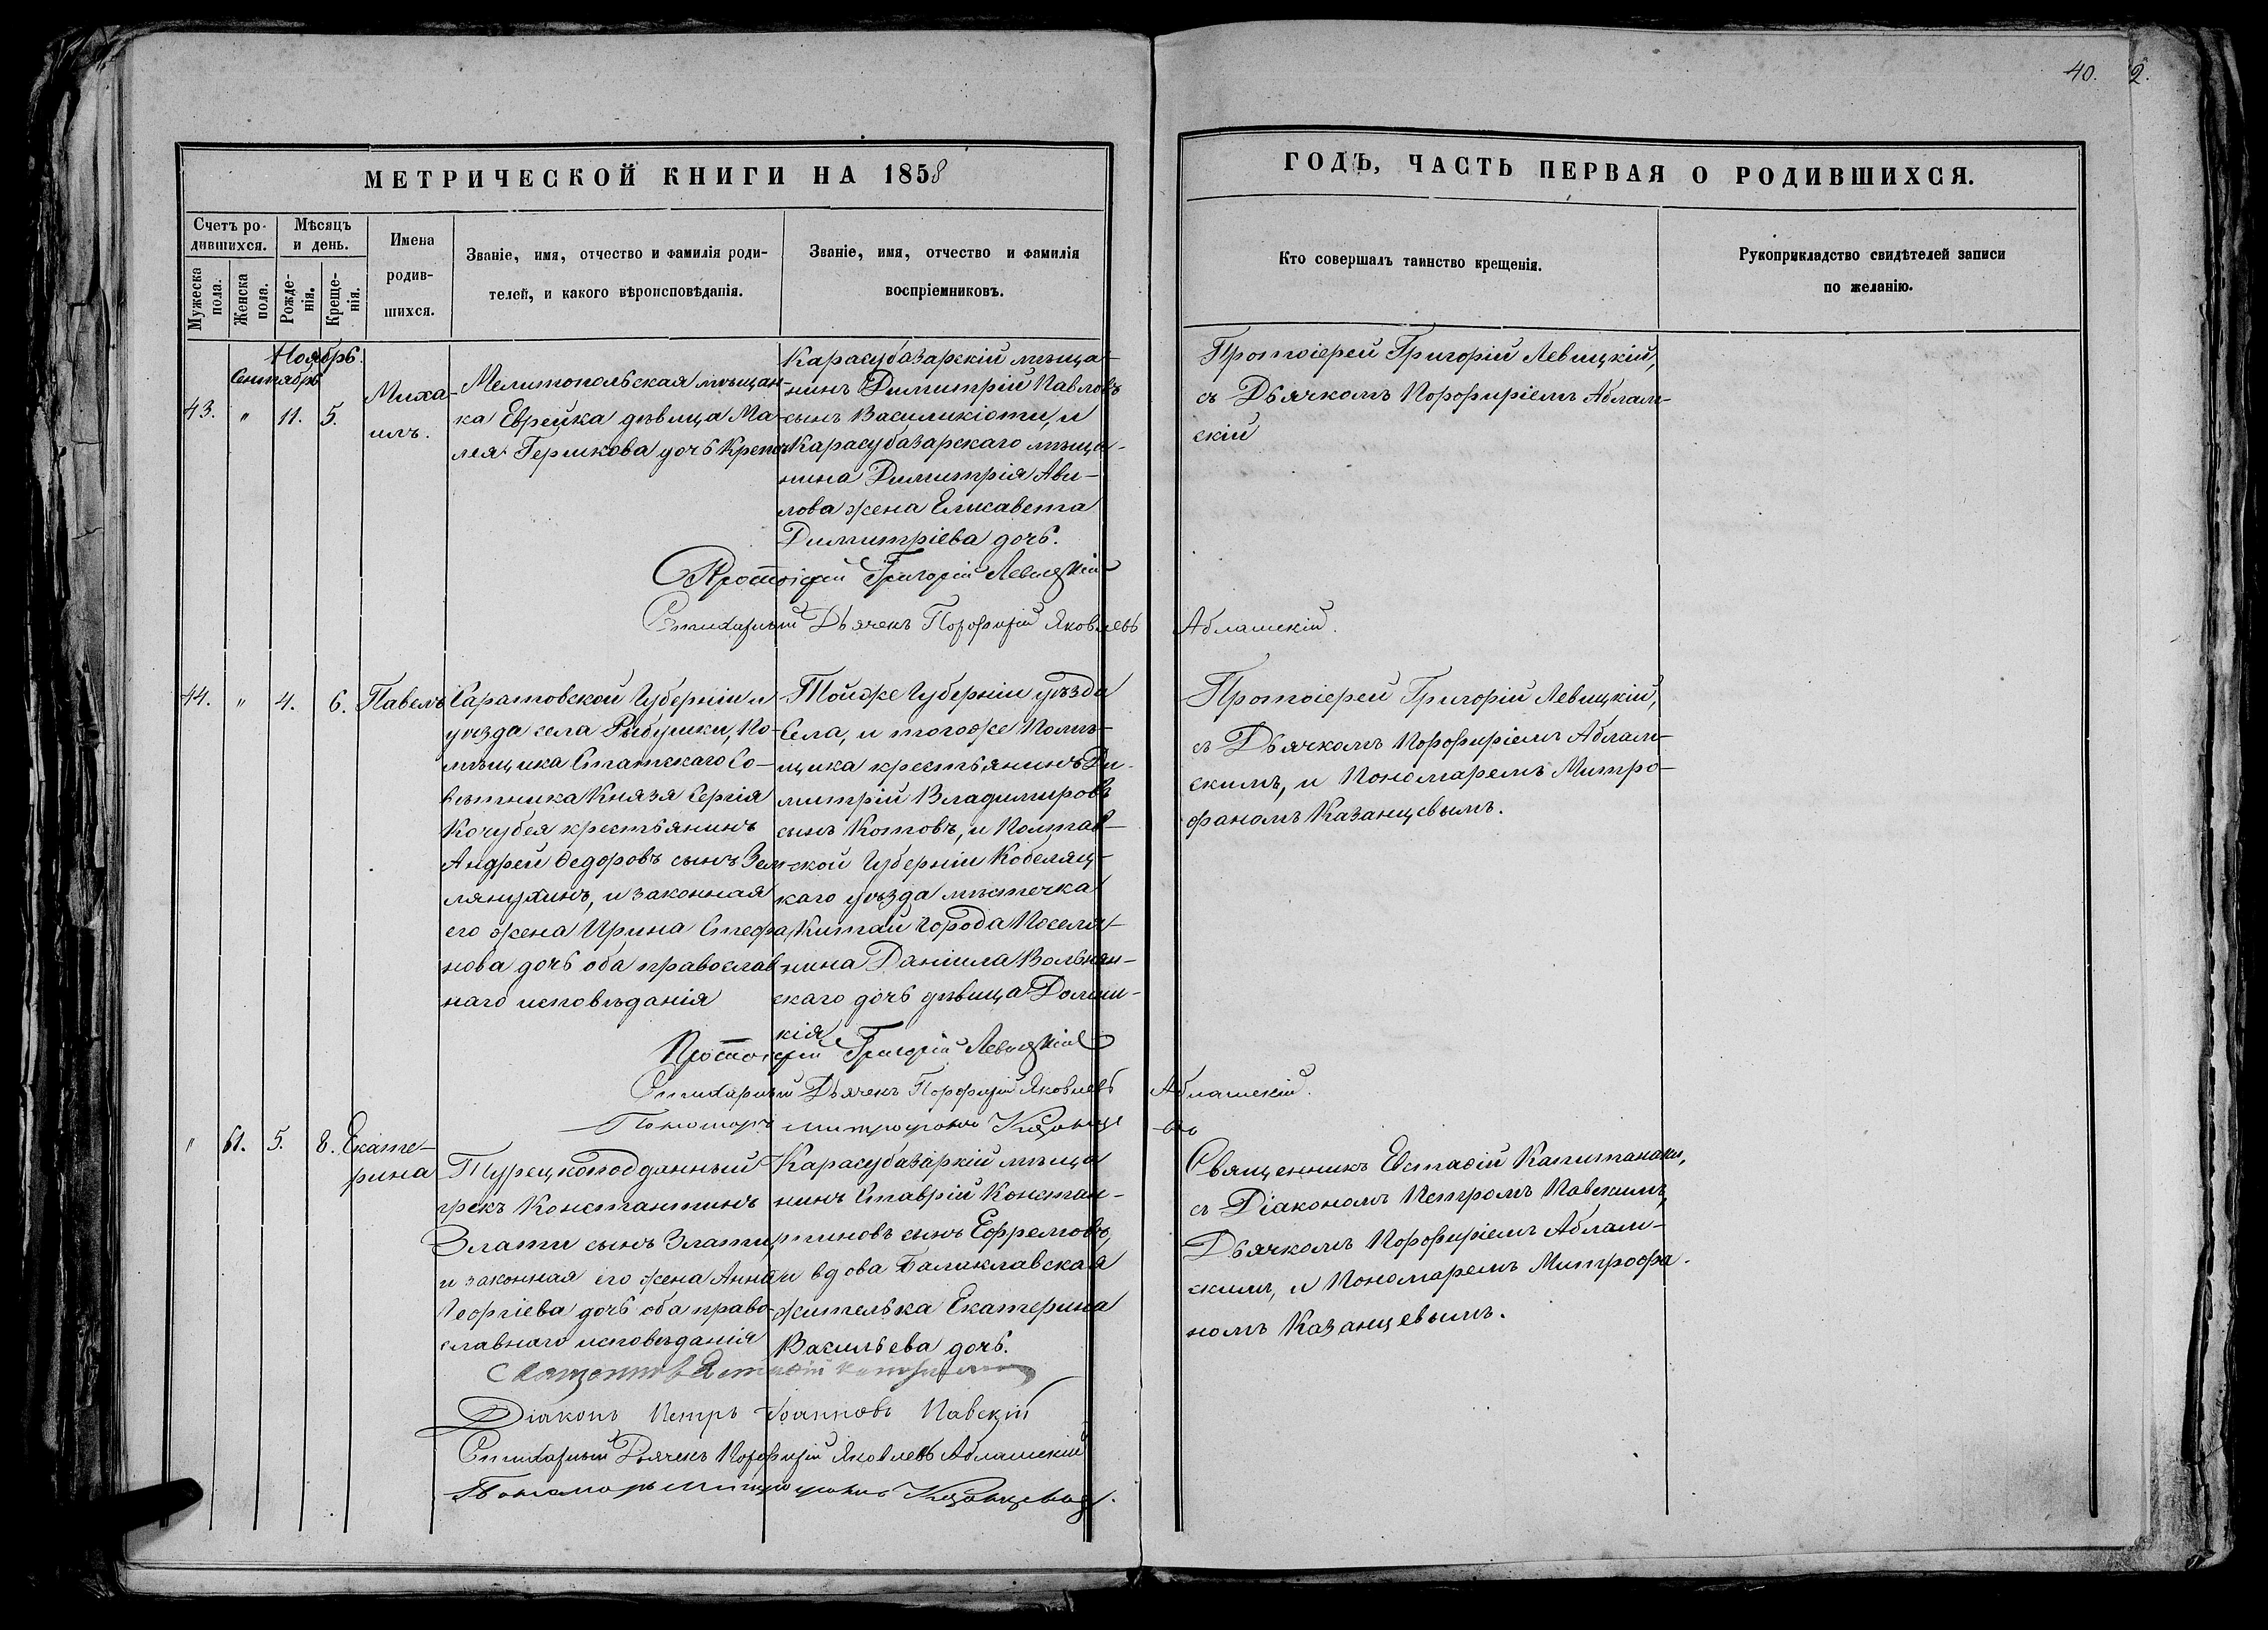 40. 2.
МЕТРИЧЕСКОЙ КНИГИ НА 1858
ГОДЪ, ЧАСТЬ ПЕРВАЯ О РОДИВШИХСЯ.
Счетъ ро-
дившихся.
Мужеска
пола.
Женска
пола.
Мѣсяцъ
и день.
Рожде-
нія.
Креще-
нія.
Имена
родив-
шихся.
Званіе, имя, отчество и фамилія роди-
телей, и какого вѣроисповѣданія.
Званіе, имя, отчество и фамилія
воспріемниковъ.
Кто совершалъ таинство крещенія.
Рукоприкладство свидѣтелей записи
по желанію.
Ноябрь.
Сентябрь
43. " 11. 5.
Миха-
илъ.
Мелитопольская мѣщан-
ка Еврейка дѣвица Ма-
лея Гершкова дочь
Карасубазарскій мѣща-
нинъ Димитрій Павловъ
сынъ Василикіоти, и
Карасубазарскаго мѣща-
нина Димитрія Ави-
лова жена Елисавета
Димитріева дочь.
Протоіерей Григорій Левицкій,
съ Дьячкомъ Порфиріемъ Аблам-
скій
Протоіерей Григорій Левицкій
Стихарный Дьячекъ Порфирій Яковлевъ Абламскій.
44. " 4. 6. Павелъ
Саратовской Губерніи и
уѣзда села Рыбушки, По-
мѣщика Статскаго Со-
вѣтника Князя Сергія
Кочубея крестьянинъ
Андрей Ѳедоровъ сынъ Зем-
лянухинъ, и законная
его жена Ирина Стефа-
нова дочь оба православ-
наго исповѣданія
Тойже Губерніи уѣзда
Села, и тогоже Помѣ-
щика крестьянинъ Ди-
митрій Владимировъ
сынъ Котовъ, и Полтав-
ской Губерніи Кобеляц-
каго уѣзда мѣстечка
Китай города Поселя-
нина Даніила Вольнян-
скаго дочь дѣвица Домни-
кія
Протоіерей Григорій Левицкій,
съ Дьячкомъ Порфиріемъ Аблам-
скимъ, и Пономаремъ Митро-
фаномъ Казанцевымъ.
Протоіерей Григорій Левицкій
Стихарный Дьячекъ Порфирій Яковлевъ Абламскій.
Пономарь Митрофанъ Казанце-въ
" 61. 5. 8. Екате-
рина
Турецкоподданный
грекъ Константинъ
Злати сынъ Злати,
и законная его жена Анна
Георгіева дочь оба право-
славнаго исповѣданія
Карасубазаркій мѣща
нинъ Ставрій Констан-
тиновъ сынъ Ефремовъ,
и вдова Балаклавская
жителька Екатерина
Васильева дочь.
Священникъ Евстаѳій Капитанаки,
съ Діакономъ Петромъ Павскимъ,
Дьячкомъ Порфиріемъ Аблам-
скимъ, и Пономаремъ Митрофа-
номъ Казанцевымъ.
Священникъ Евстаѳій
Діаконъ Петръ Іоанновъ Павскій
Стихарный Дьячекъ Порфирій Яковлевъ Абламскій
Пономарь Митрофанъ Казанцевъ.